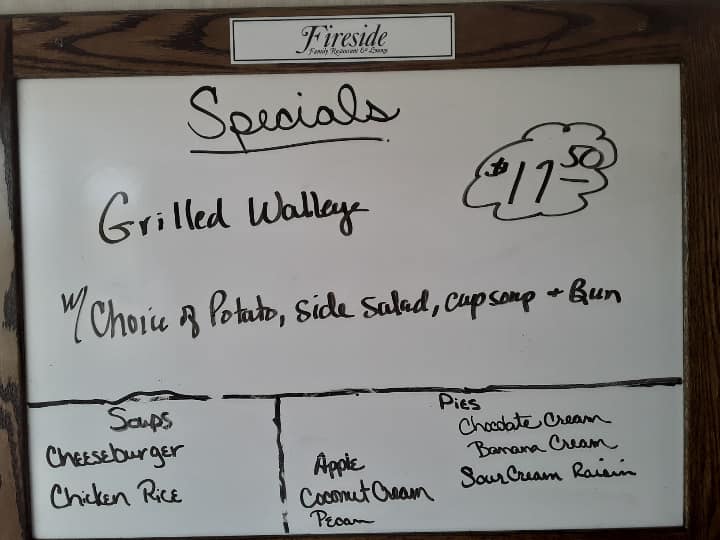 Fireside
Family Restaurant & Lounge
Specials
$17.50
Grilled Walleye
w/ Choice of Potato, Side Salad, cup soup + Bun
Soups
Cheeseburger
Chicken Rice
Pies
Chocolate Cream
Banana Cream
Sour Cream Raisin
Apple
Coconut Cream
Pecan